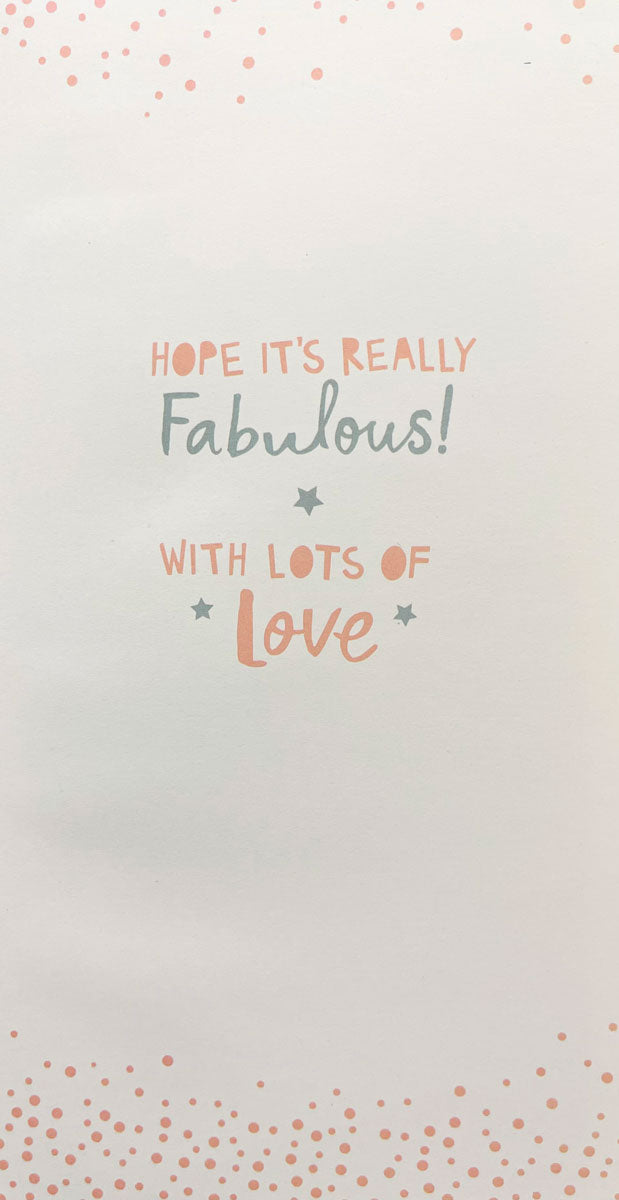 HOPE IT'S REALLY
Fabulous!
WITH LOTS OF
Love